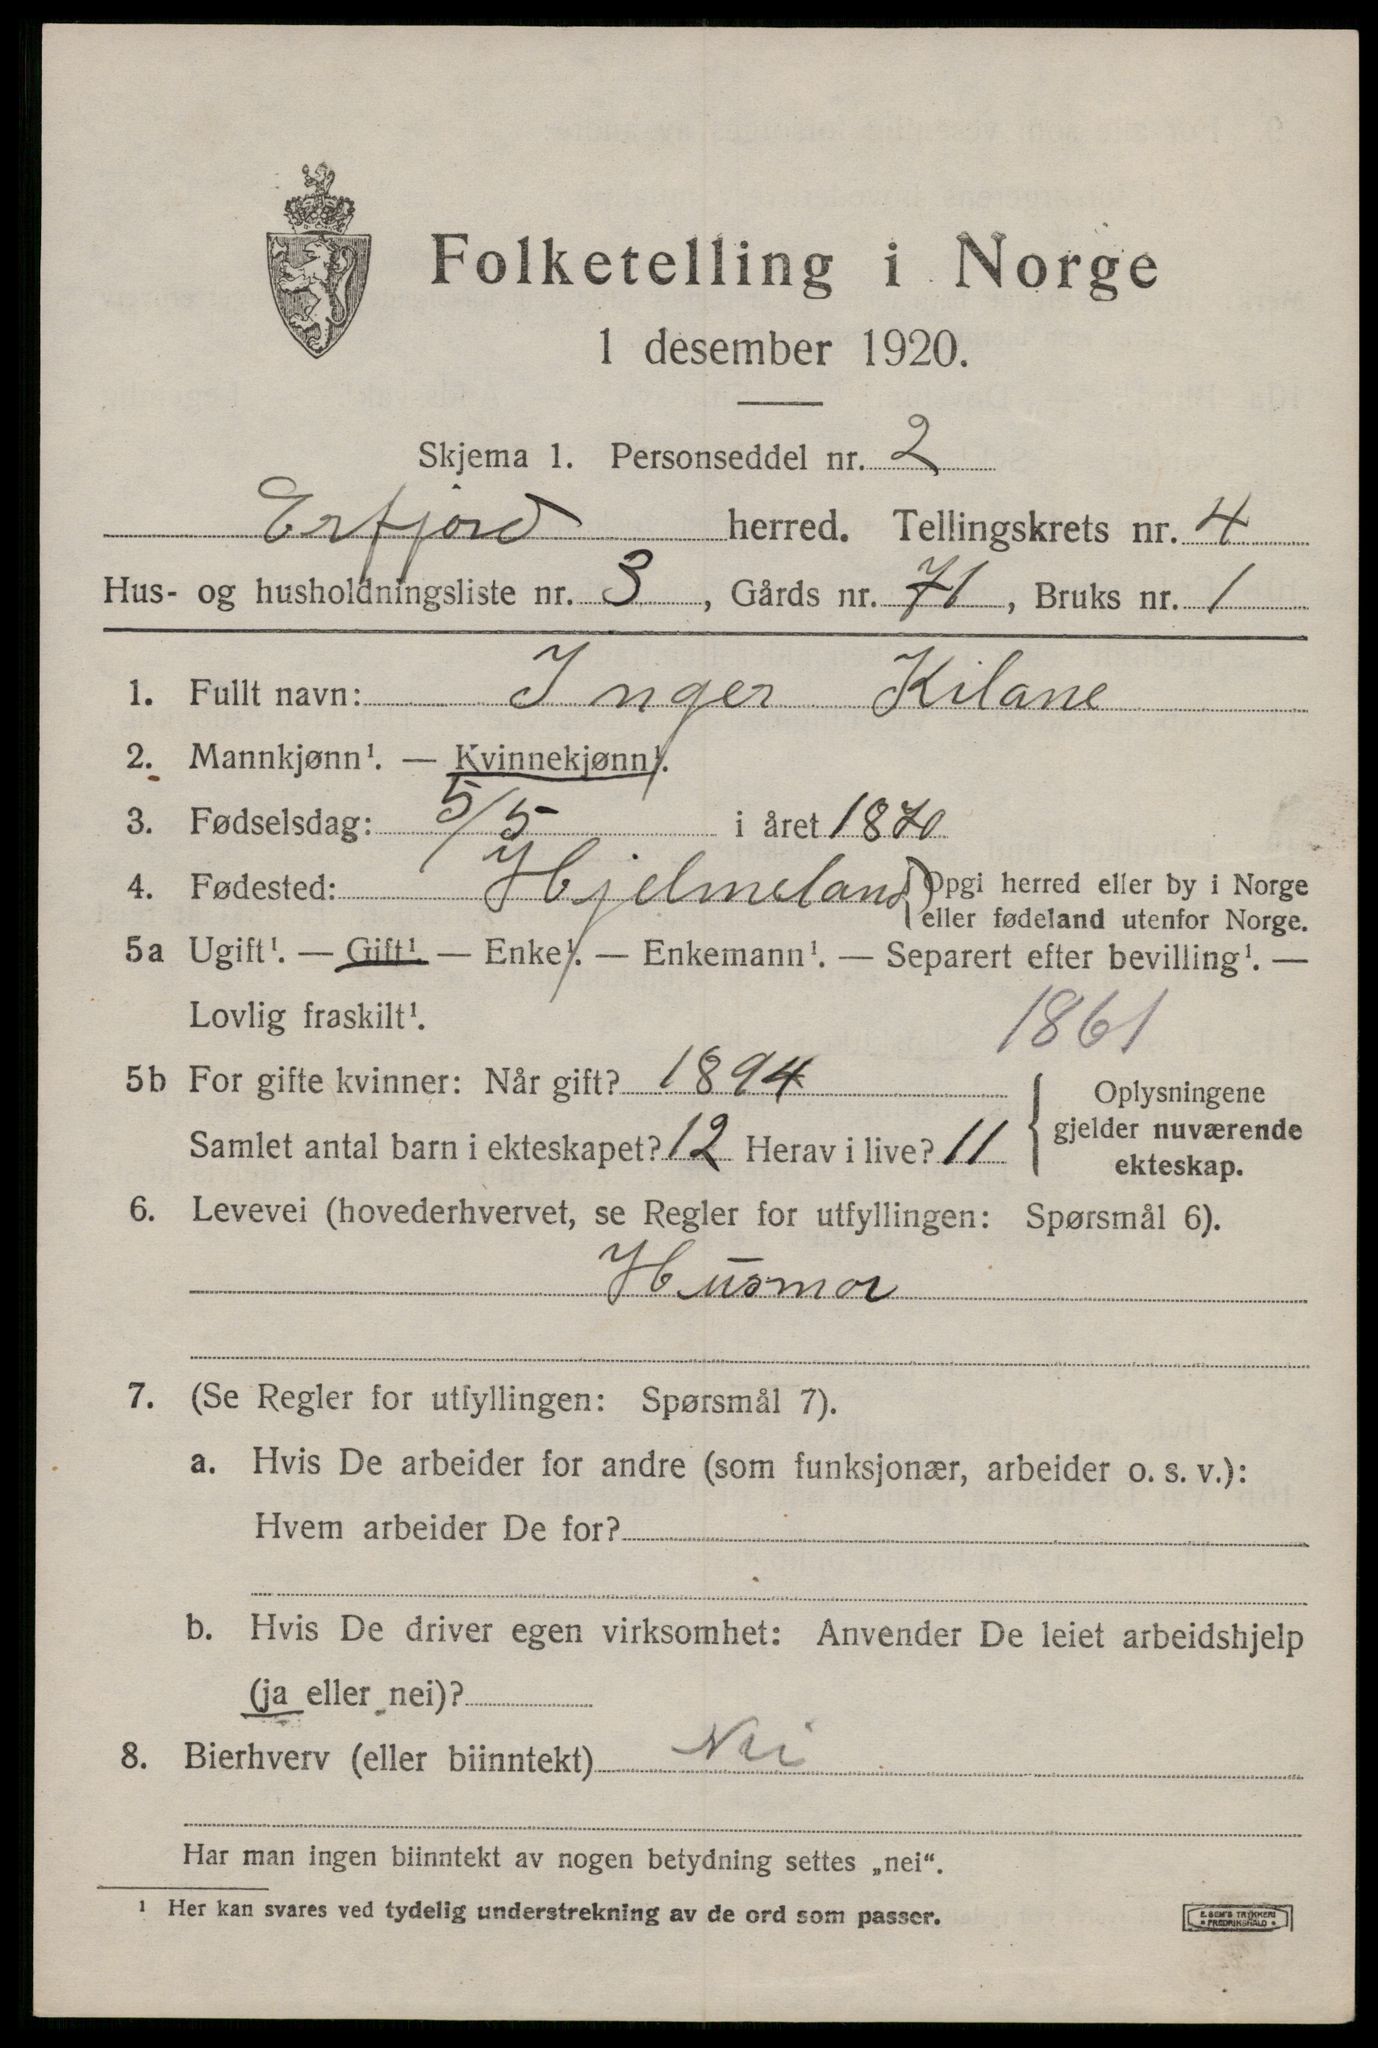 Folketelling i Norge
1 desember 1920.
Skjema 1. Personseddel nr. 2
Erfjord herred. Tellingskrets nr. 4
Hus- og husholdningsliste nr. 3, Gårds nr. 71, Bruks nr. 1
1. Fullt navn: Inger Kilane
2. Mannkjønn¹. — Kvinnekjønn¹.
3. Fødselsdag: 5/5 i året 1870
4. Fødested: Hjelmeland {Opgi herred eller by i Norge
eller fødeland utenfor Norge.
5a Ugift¹. — Gift¹. — Enke¹. — Enkemann¹. — Separert efter bevilling¹. —
Lovlig fraskilt¹.
1861
5b For gifte kvinner: Når gift? 1894
Samlet antal barn i ekteskapet? 12 Herav i live? 11
{Oplysningene
gjelder nuværende
ekteskap.
6. Levevei (hovederhvervet, se Regler for utfyllingen: Spørsmål 6).
Husmor
7. (Se Regler for utfyllingen: Spørsmål 7).
a. Hvis De arbeider for andre (som funksjonær, arbeider o. s. v.):
Hvem arbeider De for?
b. Hvis De driver egen virksomhet: Anvender De leiet arbeidshjelp
(ja eller nei)?
8. Bierhverv (eller biinntekt) Nei
Har man ingen biinntekt av nogen betydning settes „nei“.
¹ Her kan svares ved tydelig understrekning av de ord som passer.
E. SEM'S TRYKKERI
FREDRIKSHALD